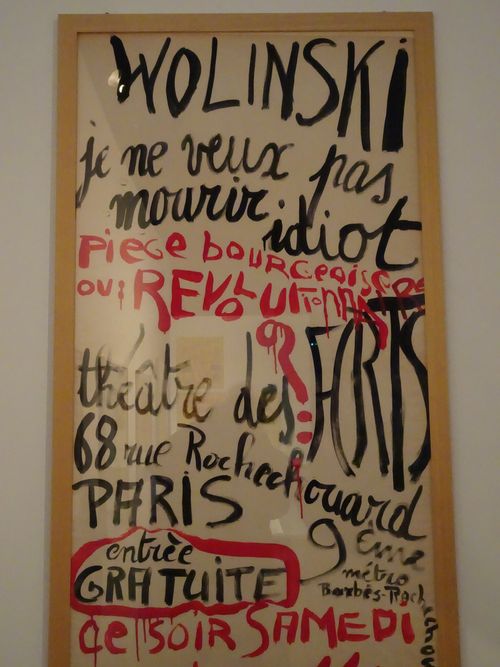 WOLINSKI
je ne veux pas
mourir idiot
PIECE BOURGEOISE
OU: REVOLUTIONNAIRE
?
théâtre des ARTS
68 rue Rochechouard
PARIS 9ème
métro
Barbès-Rochechou
entrée
GRATUITE
CE SOIR SAMEDI